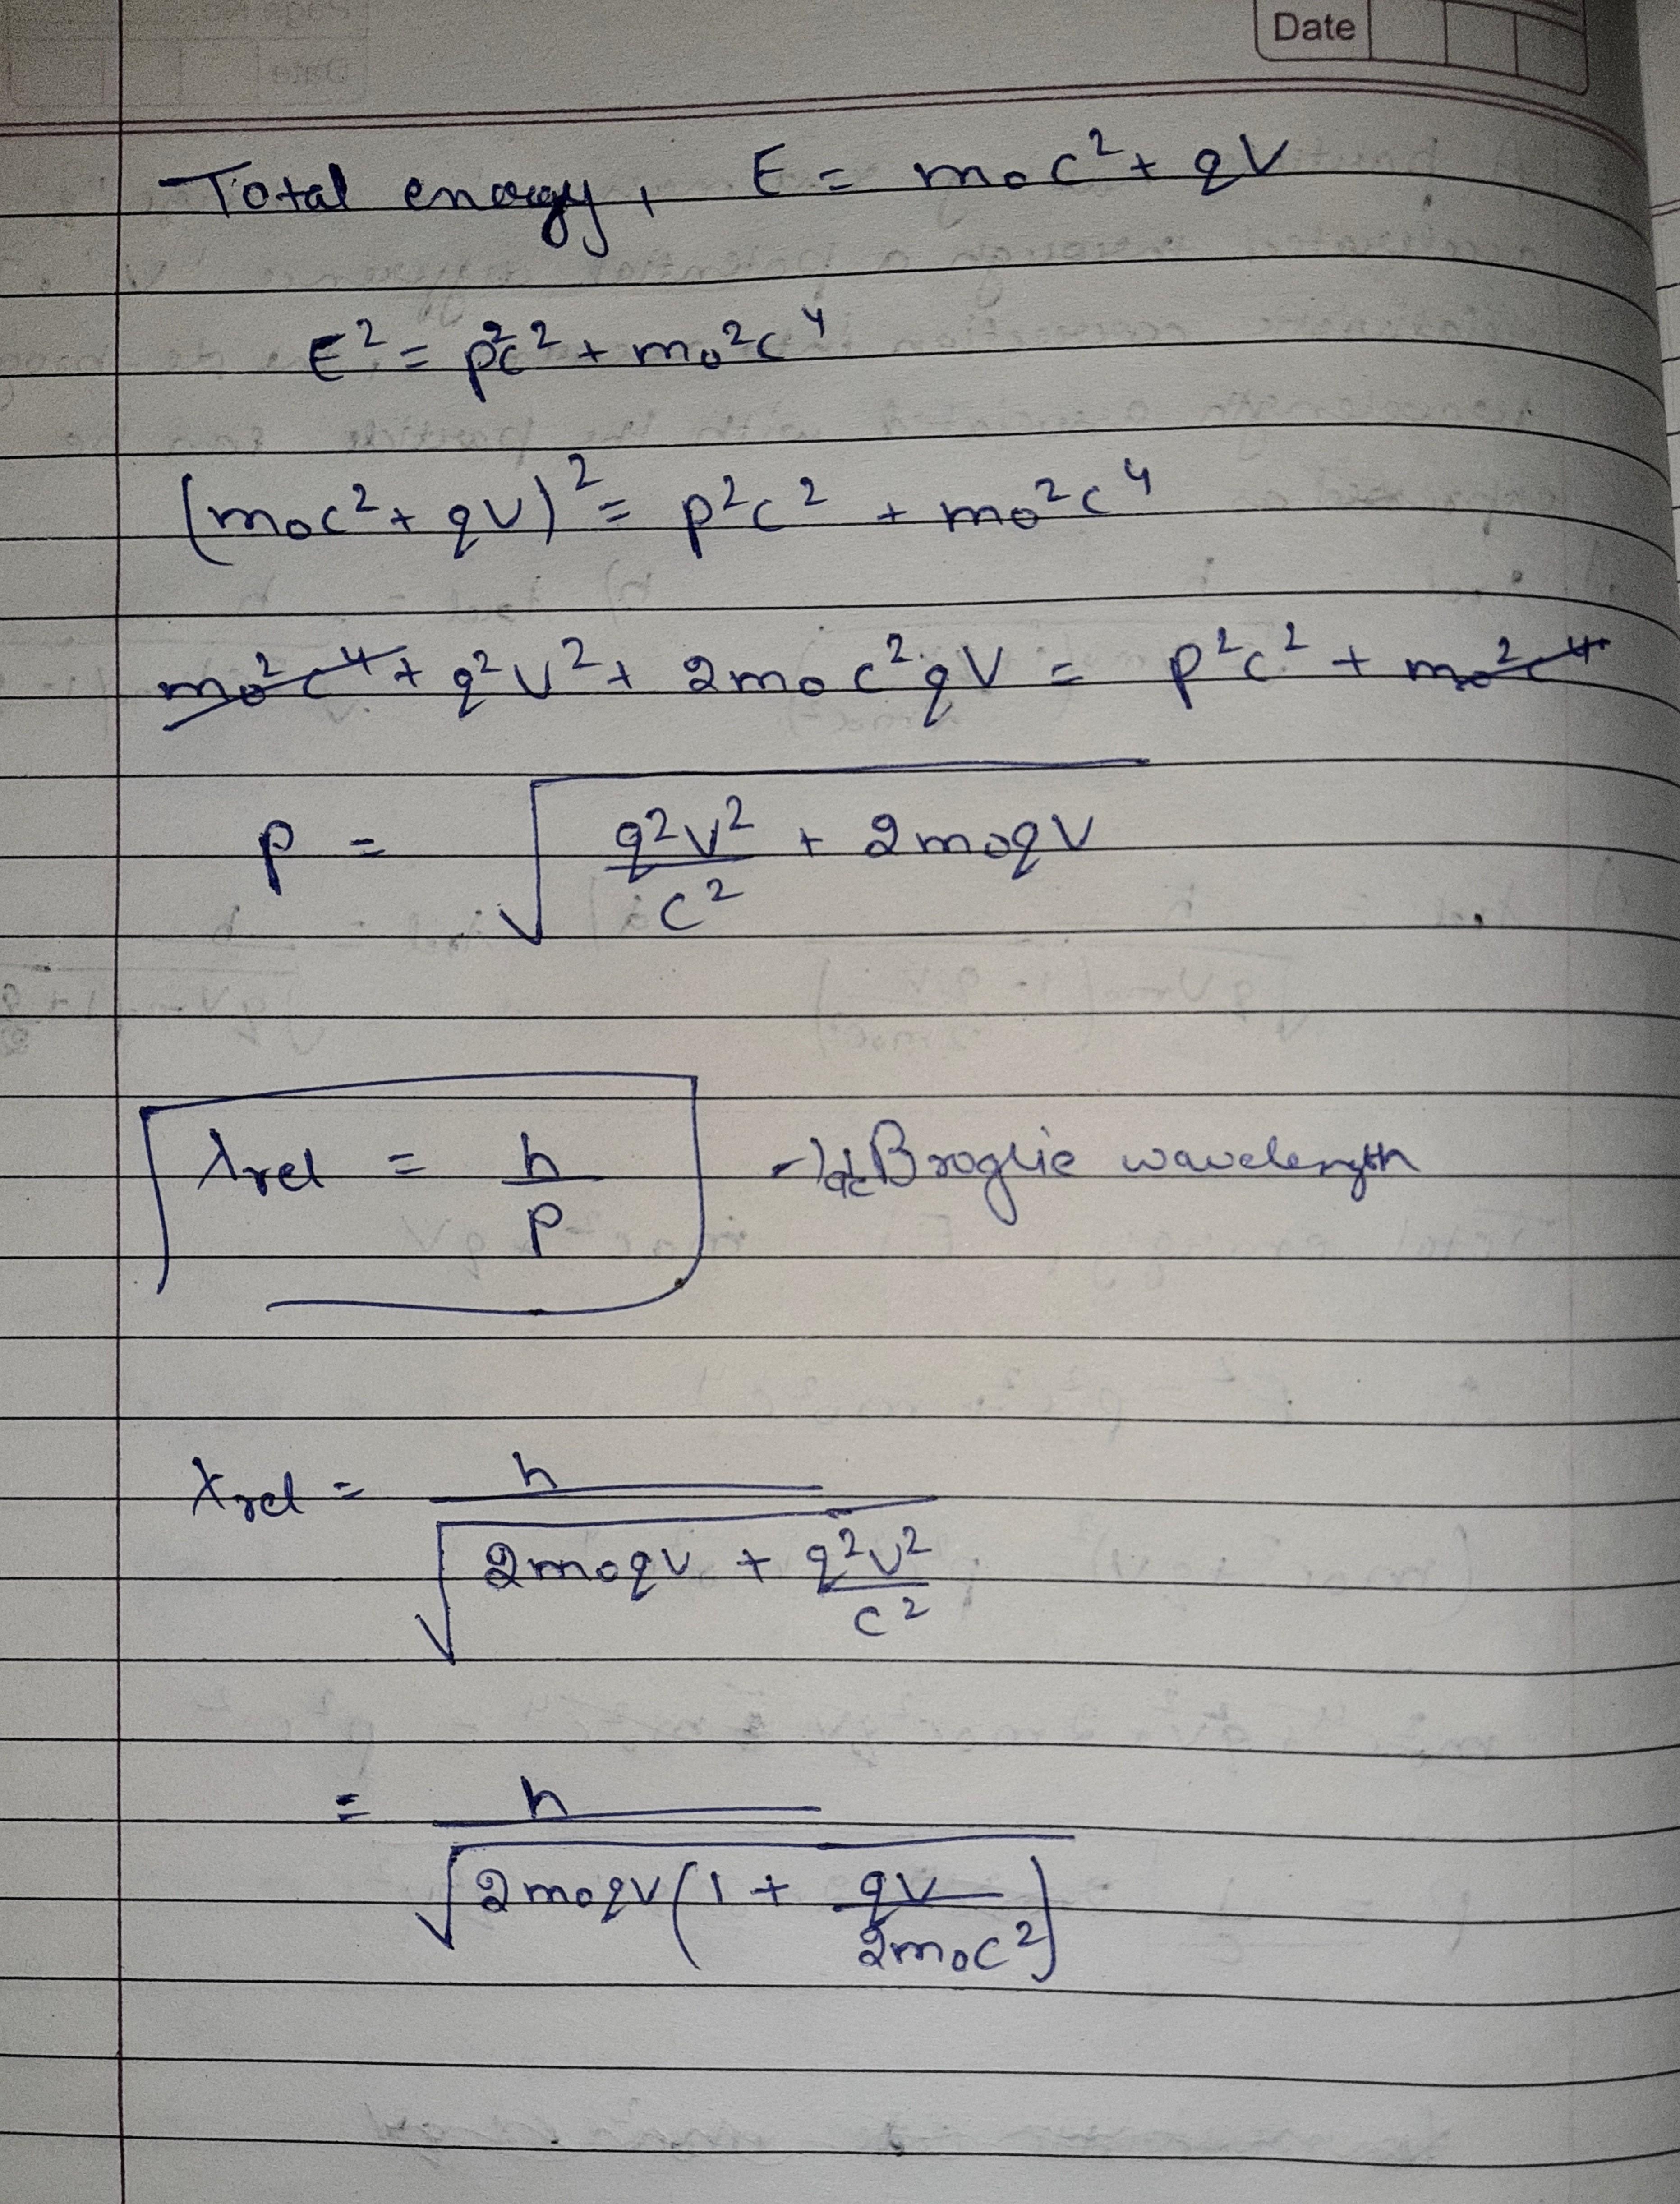 Date
Total energy, E = m₀c² + qV
E² = p²c² + m₀²c⁴
(m₀c² + qV)² = p²c² + m₀²c⁴
m₀²c⁴ + q²V² + 2m₀c²qV = p²c² + m₀²c⁴
p = √(q²V²/c² + 2m₀qV)
λrel = h/p → de Broglie wavelength
λrel = h/√(2m₀qV + q²V²/c²)
= h/√(2m₀qV(1 + qV/2m₀c²))